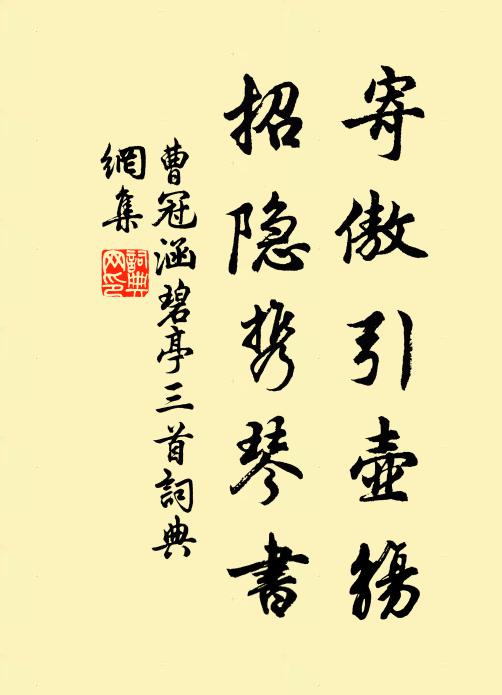 寄傲引壺觴
招隐携琴書
曹冠涵碧亭三首詞典
網集
詞典
網印